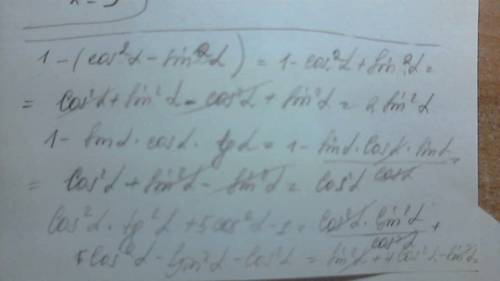 1 - (cos²α - sin²α) = 1 - cos²α + sin²α =
= cos²α + sin²α - cos²α + sin²α = 2 sin²α
1 - sinα · cosα · tgα = 1 - sinα · cosα · sinα / cosα =
= cos²α + sin²α - sin²α = cos²α
cos²α · tg²α + 5cos²α - 1 = cos²α · sin²α / cos²α +
5cos²α - sin²α - cos²α = sin²α + 4cos²α - sin²α